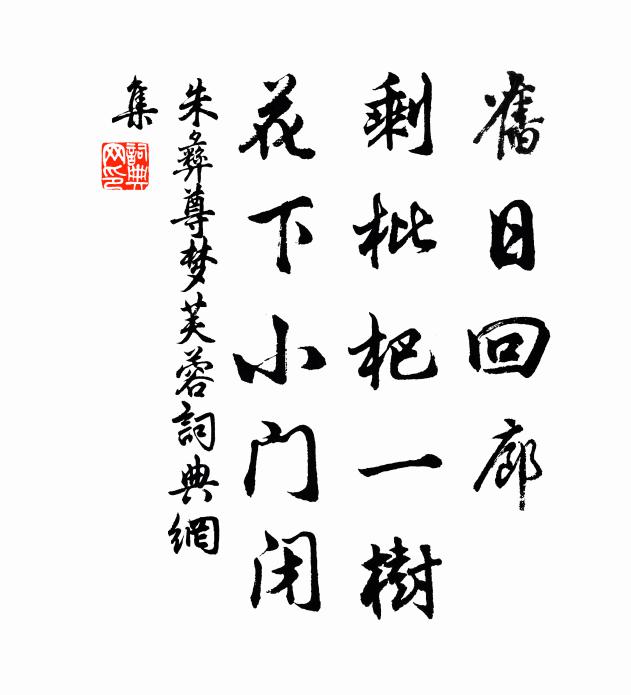 舊日回廊
剩枇杷一樹
花下小门闭
朱彝尊梦芙蓉詞典網
集
詞典网印